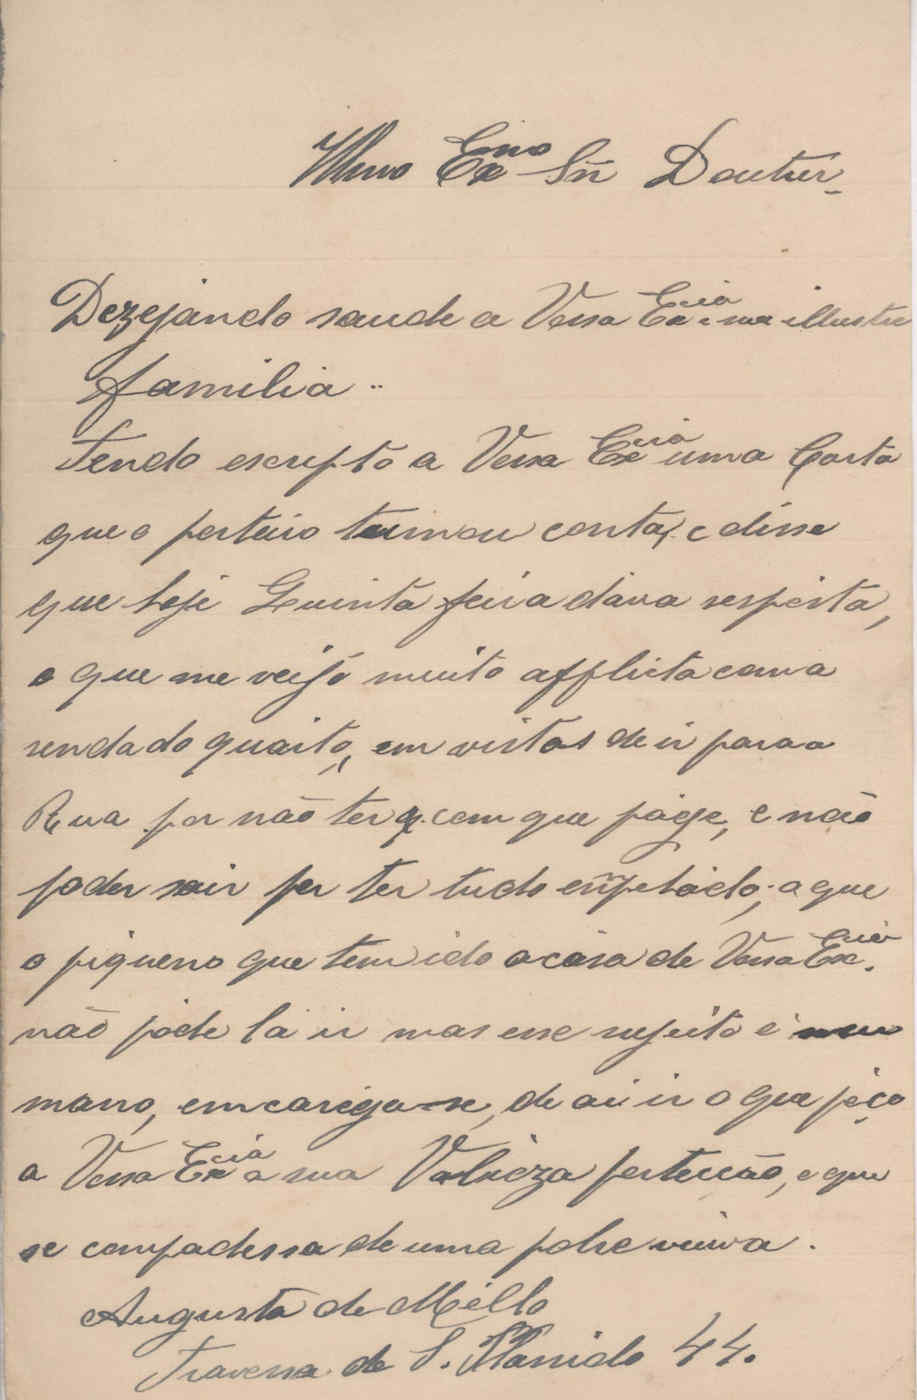 Illmo Exmo Snr Doutor
Dezejando saude a Vossa Excia e sua illustre
familia..
Tendo escripto a Vossa Excia uma Carta
que o porteiro tumou conta, e disse
que hoje Quinta feira dava resposta,
o que me veijo muito afflicta com a
renda do quarto, em vistas de ir para a
Rua por não ter q. com que page, e não
poder sair por ter tudo empenhádo, a que
o piqueno que tem ido a cása de Vossa Excia.
não póde lá ir mas esse sugeito é meu
mano, emcarega-se, de ai ir o que peço
a Vossa Excia a sua Valioza protecção, e que
se compadessa de uma pobre viuva.
Augusta de Mello
Travessa de S. Placido 44.